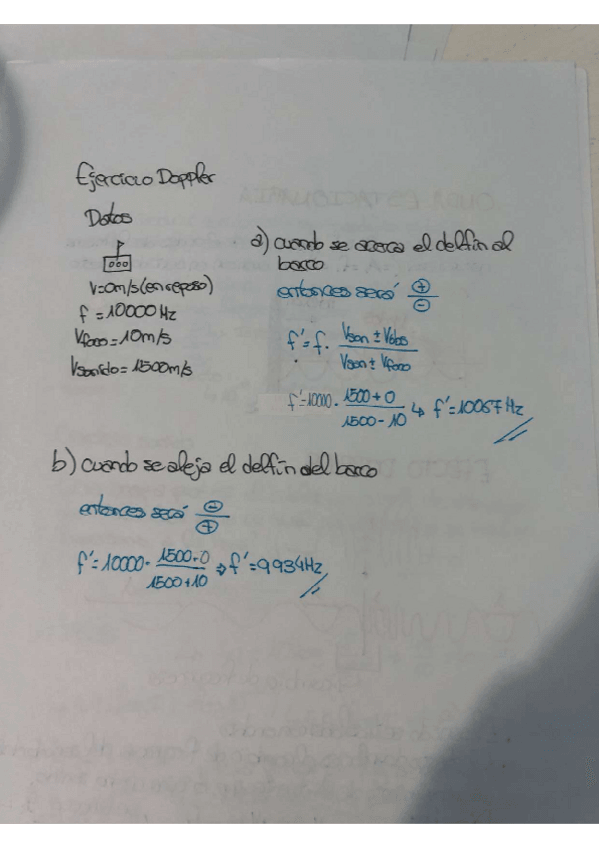 Ejercicio Doppler
Datos
v=0m/s (en reposo)
f = 10000 Hz
Vfoco = 10m/s
Vsonido = 1500m/s
a) cuando se acerca el delfín al
barco
entonces será +/-
f' = f · (Vson ± Vobs)/(Vson ± Vfoco)
f' = 10000 · (1500 + 0)/(1500 - 10) ↳ f' = 10067 Hz
b) cuando se aleja el delfín del barco
entonces será -/+
f' = 10000 · (1500 - 0)/(1500 + 10) → f' = 9934Hz